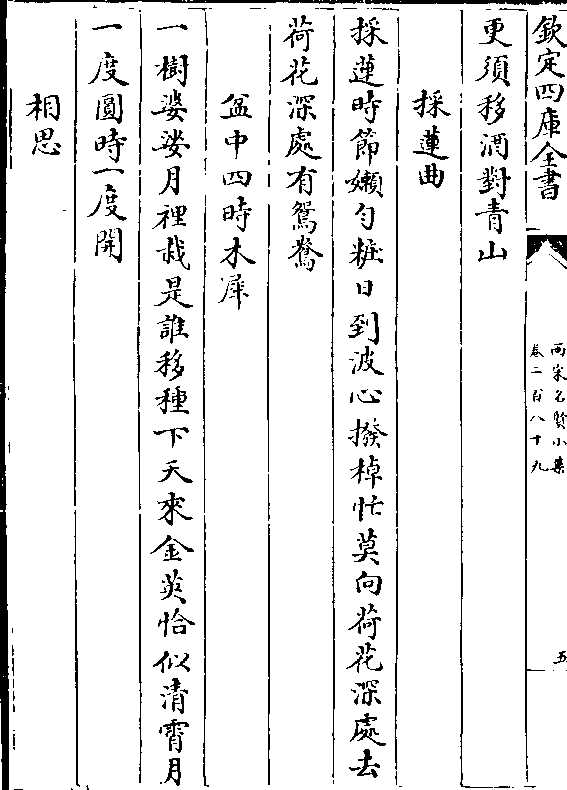 欽定四庫全書
兩宋名賢小集
卷二百八十九
五
更須移酒對青山
採蓮曲
採蓮時節嬾勻粧日到波心撥棹忙莫向荷花深處去
荷花深處有鴛鴦
盆中四時木犀
一樹婆娑月裡栽是誰移種下天來金英恰似清霄月
一度圓時一度開
相思